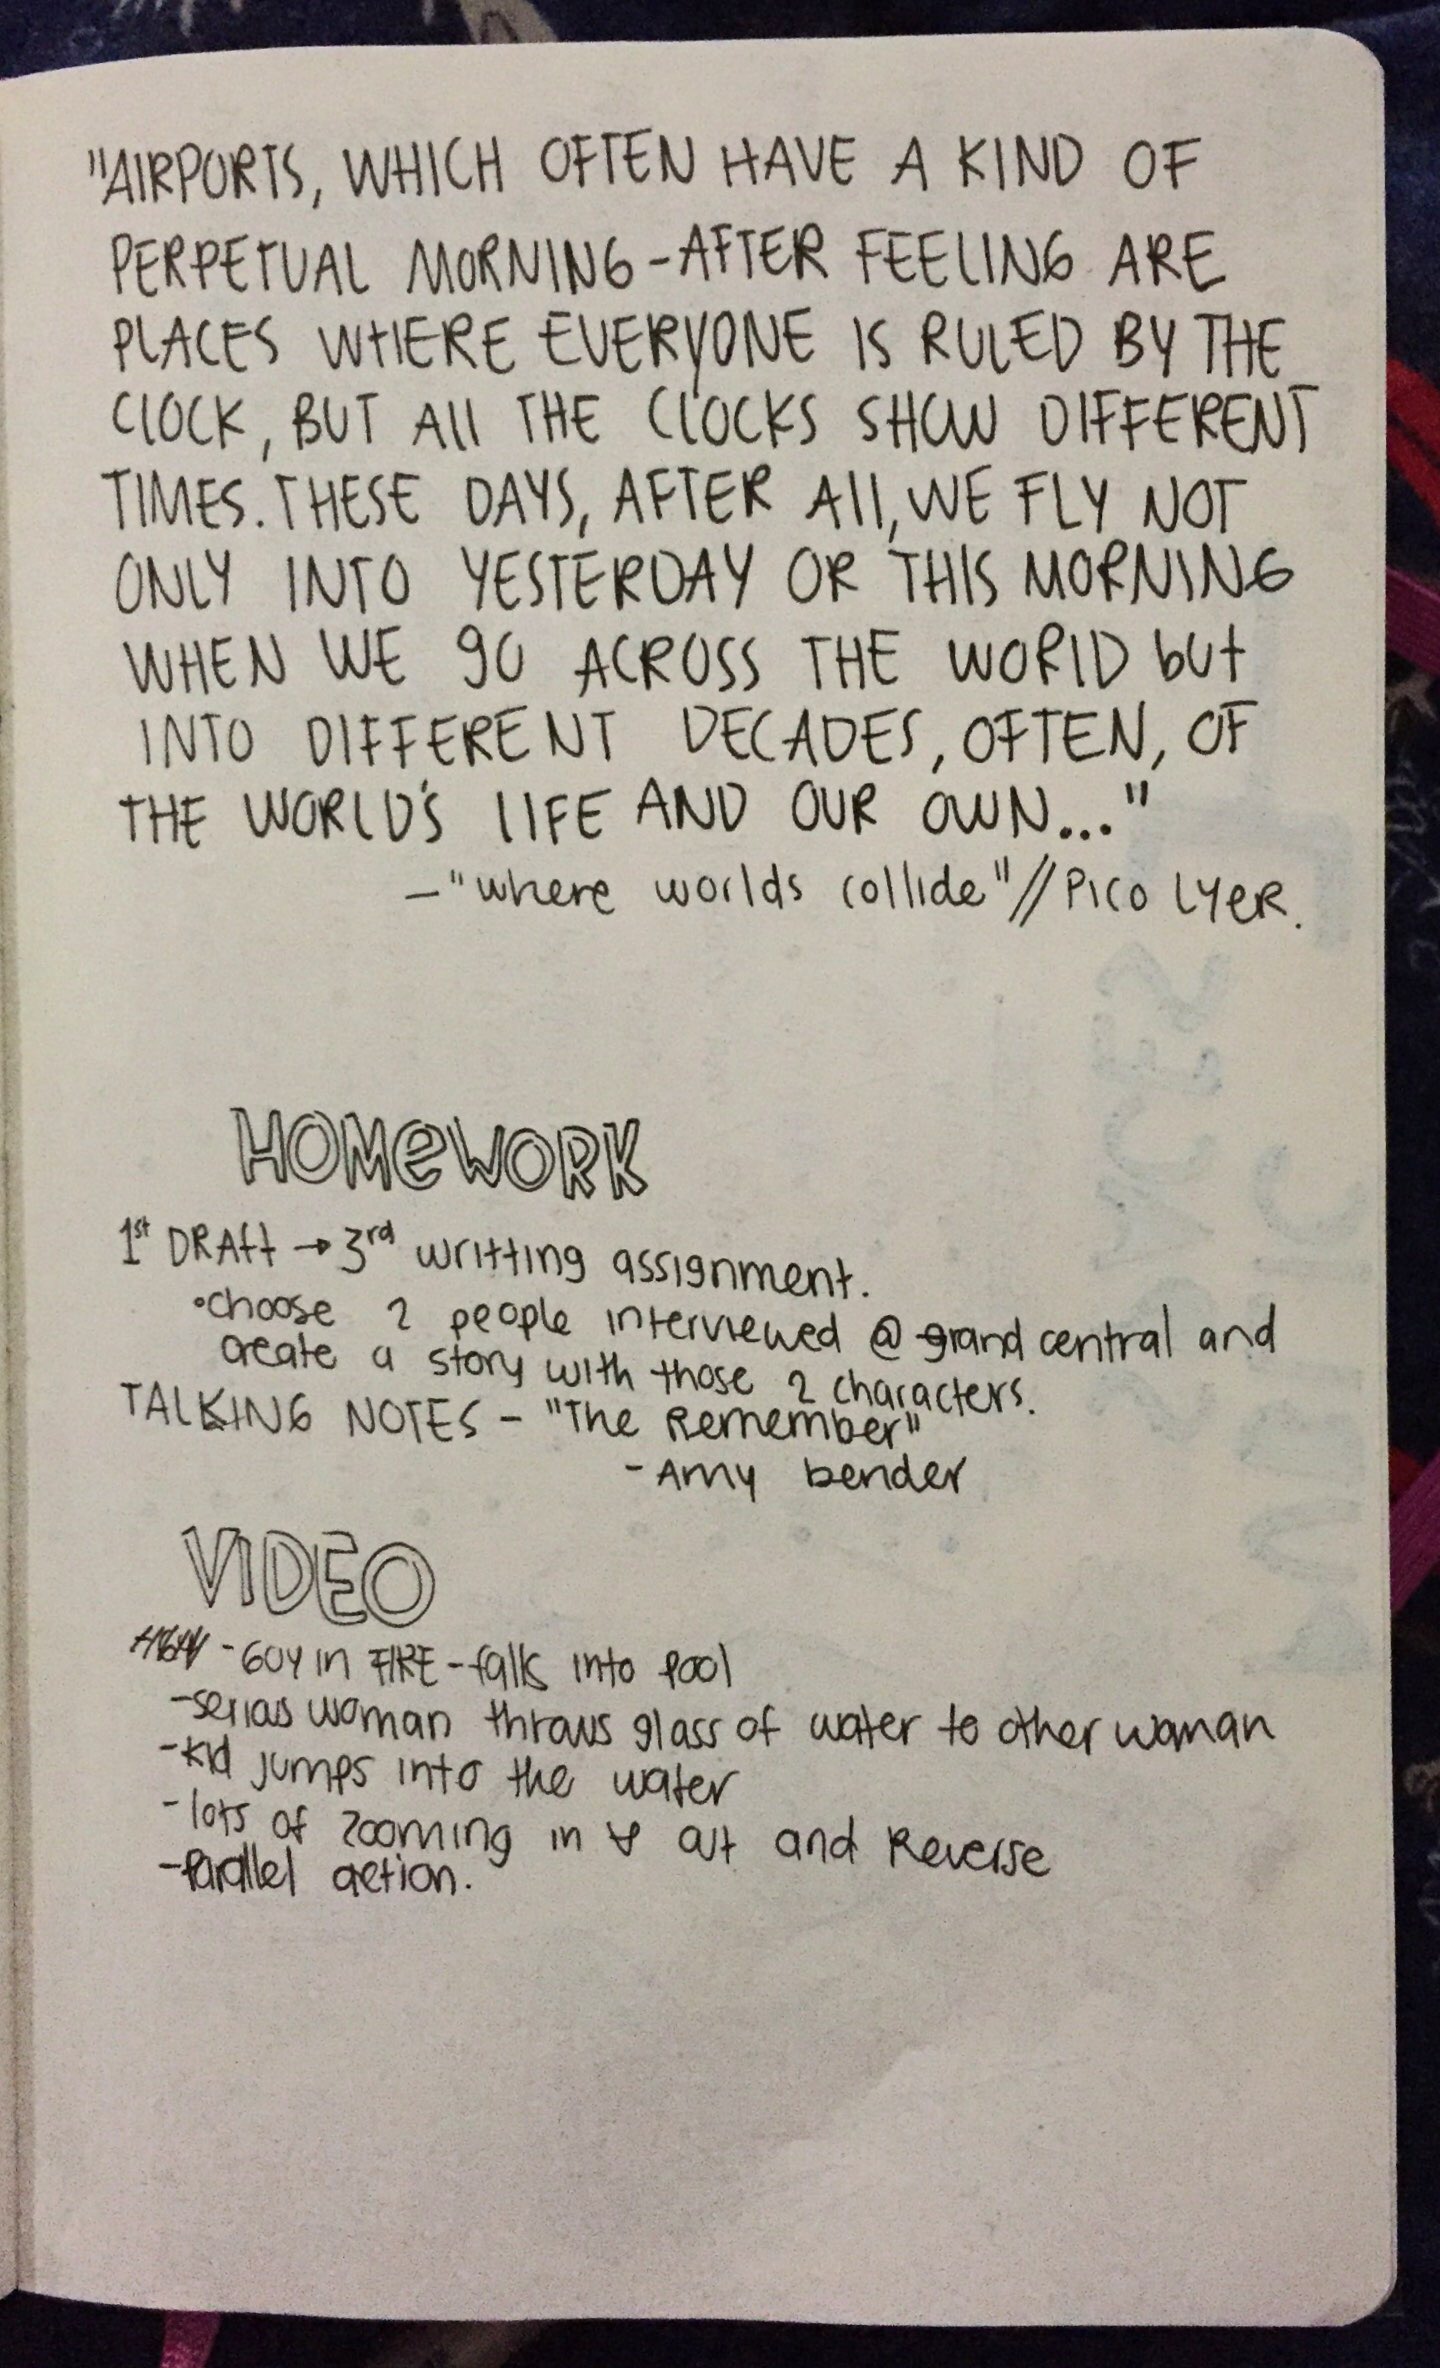 "AIRPORTS, WHICH OFTEN HAVE A KIND OF
PERPETUAL MORNING-AFTER FEELING ARE
PLACES WHERE EVERYONE IS RULED BY THE
CLOCK, BUT All THE CLOCKS SHOW DIFFERENT
TIMES. THESE DAYS, AFTER All, WE FLY NOT
ONLY INTO YESTERDAY OR THIS MORNING
WHEN WE gO ACROSS THE WORLD but
INTO DIFFERENT DECADES, OFTEN, OF
THE WORLD'S LIFE AND OUR OWN..."
- "where worlds collide" // Pico LYER.
HOMeWORK
1st DRAft → 3rd writting assignment.
• choose 2 people interviewed @ grand central and
create a story with those 2 characters.
TALKING NOTES - "The Remember"
- Amy bender
VIDEO
- GUY in FIRE - falls into pool
- serious woman throws glass of water to other woman
- kid jumps into the water
- lots of zooming in & out and Reverse
- Parallel action.